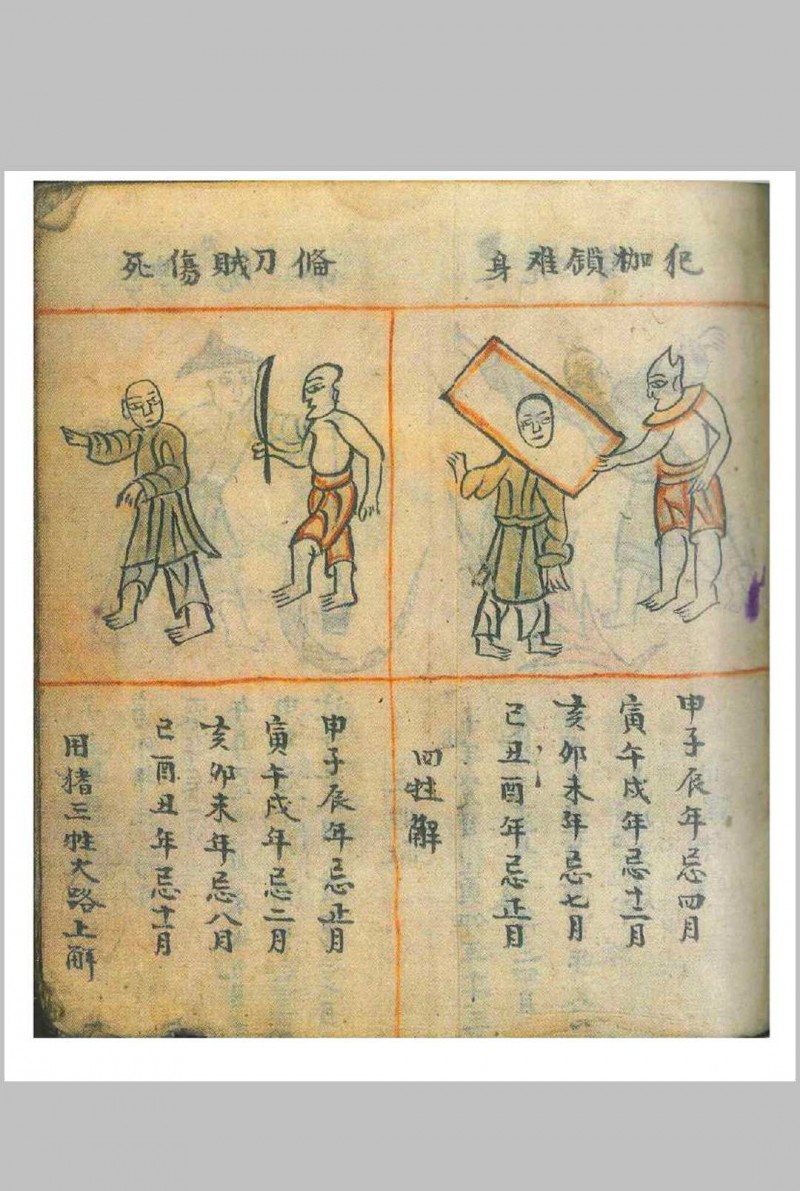 犯枷鎖难身
申子辰年忌四月
寅午戌年忌十二月
亥卯未年忌七月
己丑酉年忌正月
四牲解
俻刀賊傷死
申子辰年忌正月
寅午戌年忌二月
亥卯未年忌八月
己酉丑年忌十一月
用猪三牲大路上解